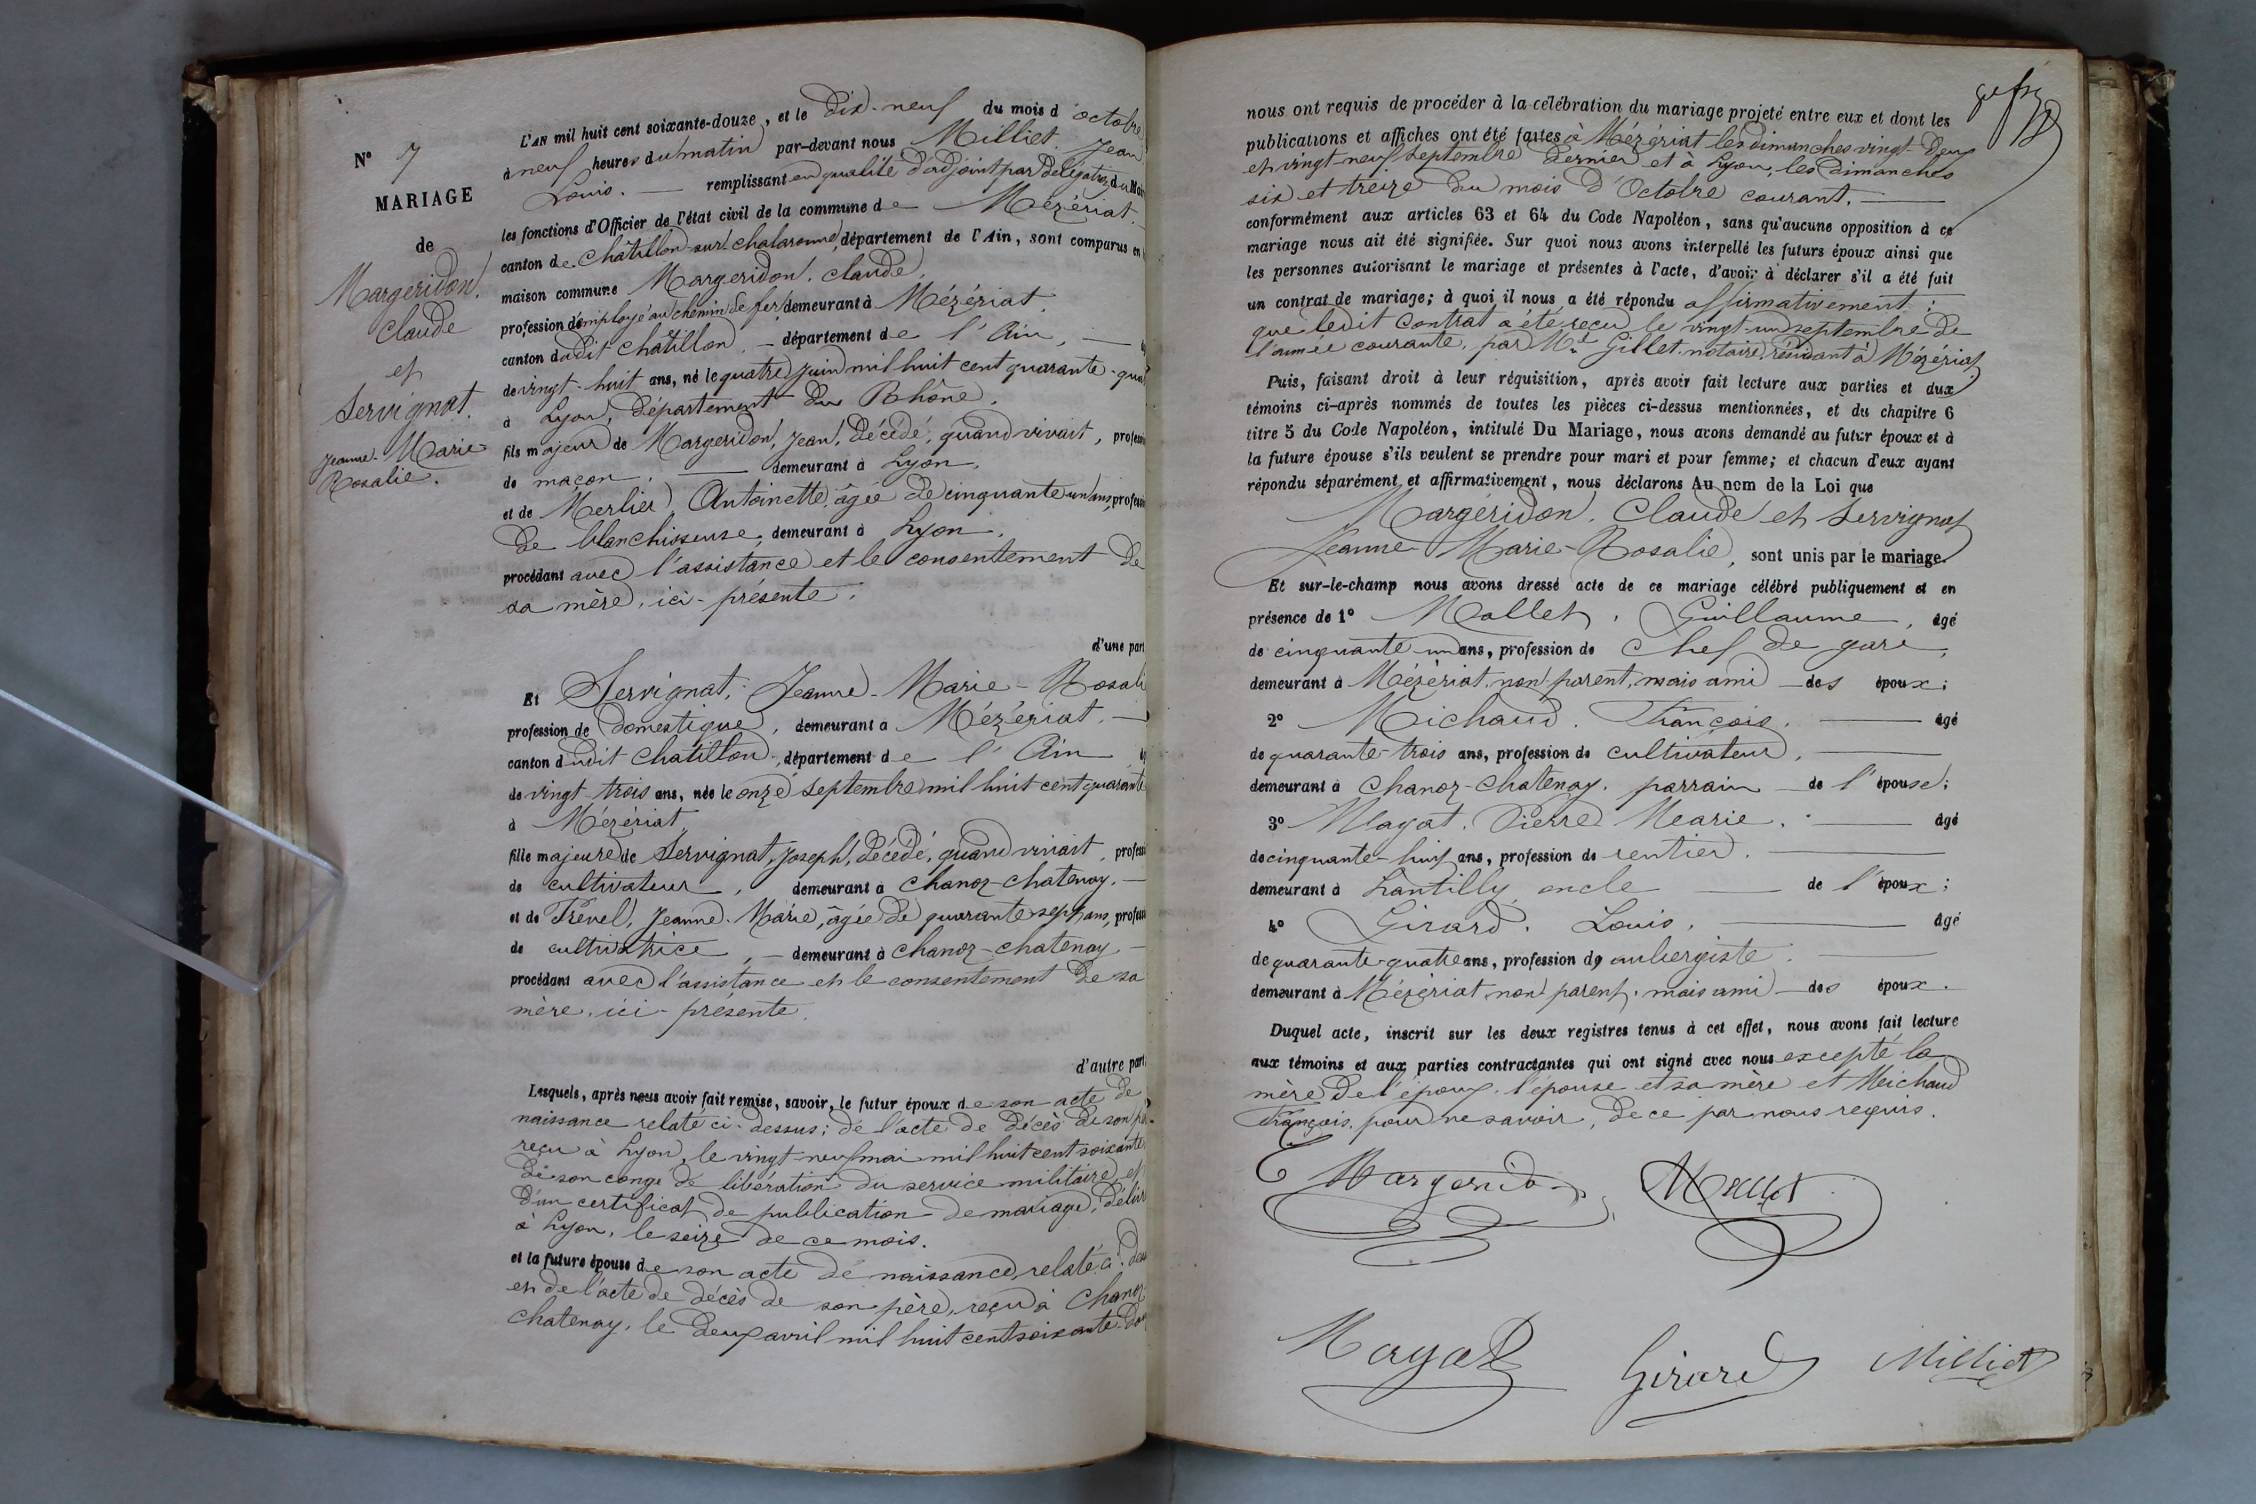 L'AN mil huit cent soixante-douze, et le Dix-neuf du mois d'octobre
N° 7
à neuf heures du matin par-devant nous Milliet. Jean
Louis. — remplissant en qualité d'adjoint par délégation du Mai
MARIAGE
les fonctions d'Officier de l'état civil de la commune de Mézériat.
de
canton de Châtillon-sur-chalaronne, département de l'Ain, sont comparus en
Margeridon.
maison commune Margeridon. claude,
Claude
profession d'employé au chemin de fer demeurant à Mézériat.
et
canton dudit Châtillon. — département de l'Ain, —
Servignat.
de vingt-huit ans, né le quatre juin mil huit cent quarante-qua
Jeanne-Marie
à Lyon, département du Rhône.
Rosalie.
fils majeur de Margeridon, Jean, Décédé, quand vivait, profess
de maçon. — demeurant à Lyon.
et de Merlier, Antoinette, âgée de cinquante un ans, profess
de blanchisseuse, demeurant à Lyon.
procédant avec l'assistance et le consentement de
sa mère, ici-présente.
d'une part
Et Servignat, Jeanne-Marie-Rosali
profession de domestique, demeurant à Mézériat. —
canton dudit Chatillon, département de l'Ain
de vingt-trois ans, née le onze septembre mil huit cent quarante
à Mézériat
fille majeure de Servignat, Joseph, décédé, quand vivait, profess
de cultivateur, demeurant à Chanoz-chatenay. —
et de Prevel, Jeanne-Marie, âgée de quarante sept ans, profess
de cultivatrice, — demeurant à Chanoz-chatenay —
procédant avec l'assistance et le consentement de sa
mère, ici-présente.
d'autre part
Lesquels, après nous avoir fait remise, savoir, le futur époux de son acte de
naissance relaté ci-dessus; de l'acte de décès de son pè
reçu à Lyon, le vingt-neuf mai mil huit cent soixante
de son congé de libération du service militaire, et
d'un certificat de publication de mariage, délivr
à Lyon, le seize de ce mois.
et la future épouse de son acte de naissance, relaté ci-
et de l'acte de décès de son père, reçu à Chanoz
chatenay, le deux avril mil huit cent soixante-
nous ont requis de procéder à la célébration du mariage projeté entre eux et dont les
publications et affiches ont été faites à Mézériat les dimanches vingt-deux
et vingt neuf septembre dernier et à Lyon, les dimanches
six et treize du mois d'Octobre courant. —
conformément aux articles 63 et 64 du Code Napoléon, sans qu'aucune opposition à ce
mariage nous ait été signifiée. Sur quoi nous avons interpellé les futurs époux ainsi que
les personnes autorisant le mariage et présentes à l'acte, d'avoir à déclarer s'il a été fait
un contrat de mariage; à quoi il nous a été répondu affirmativement:
que ledit contrat a été reçu le vingt-un septembre de
l'année courante, par Me Gillet, notaire, résidant à Mézériat
Puis, faisant droit à leur réquisition, après avoir fait lecture aux parties et aux
témoins ci-après nommés de toutes les pièces ci-dessus mentionnées, et du chapitre 6
titre 5 du Code Napoléon, intitulé Du Mariage, nous avons demandé au futur époux et à
la future épouse s'ils veulent se prendre pour mari et pour femme; et chacun d'eux ayant
répondu séparément et affirmativement, nous déclarons Au nom de la Loi que
Margéridon, Claude et Servignat
Jeanne-Marie-Rosalie, sont unis par le mariage.
Et sur-le-champ nous avons dressé acte de ce mariage célébré publiquement et en
présence de 1° Mallet, Guillaume, âgé
de cinquante-un ans, profession de Chef de gare,
demeurant à Mézériat, non parent, mais ami — des époux;
2° Michaud. François. — âgé
de quarante-trois ans, profession de cultivateur, —
demeurant à Chanoz-chatenay. parrain — de l'épouse;
3° Mayat. Pierre Marie. — âgé
de cinquante-huit ans, profession de rentier. —
demeurant à Lantilly, oncle — de l'époux;
4° Girard. Louis. — âgé
de quarante-quatre ans, profession d'aubergiste. —
demeurant à Mézériat non parent, mais ami — des époux.
Duquel acte, inscrit sur les deux registres tenus à cet effet, nous avons fait lecture
aux témoins et aux parties contractantes qui ont signé avec nous excepté la
mère de l'époux, l'épouse et sa mère et Michaud
François, pour ne savoir, de ce par nous requis.
Margerido Mallet
Mayat Girard Milliet